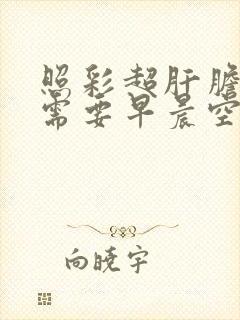 照彩超肝膽
需要早晨空
向曉宇